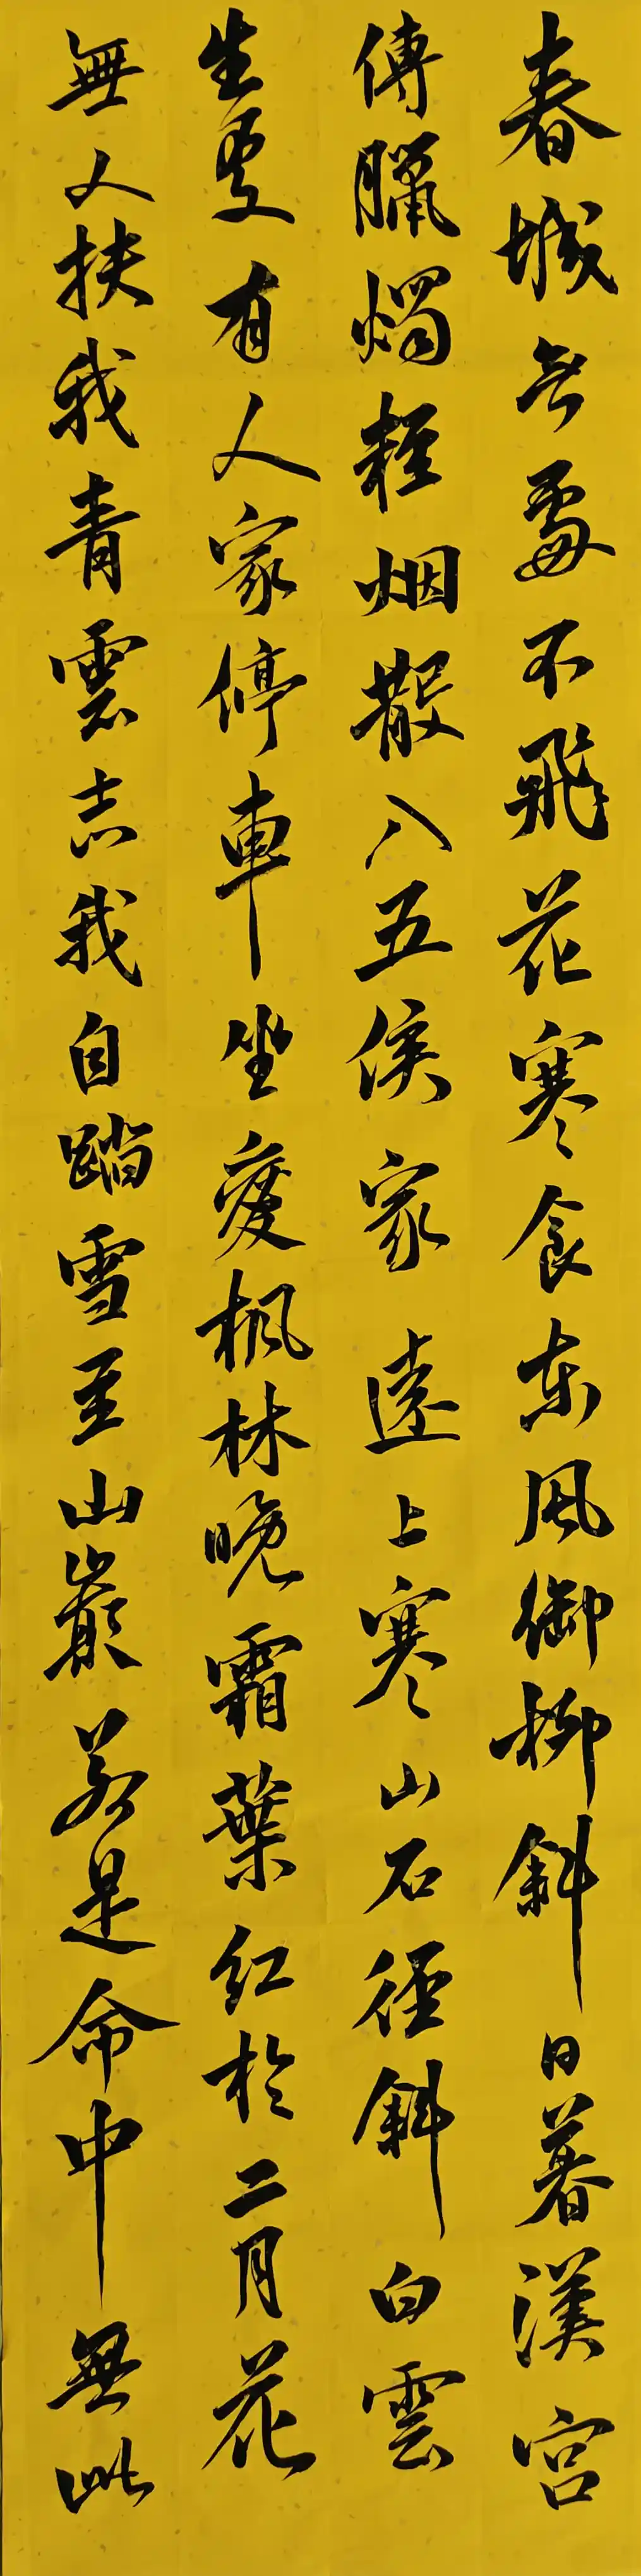 春城无處不飛花寒食東風御柳斜日暮漢宮
傳臘燭輕烟散入五侯家遠上寒山石徑斜白雲
生處有人家停車坐愛楓林晚霜葉红於二月花
無人扶我青雲志我自踏雪至山巖若是命中無此